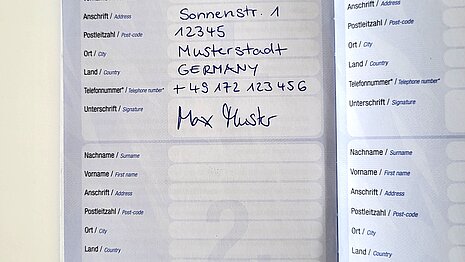 Anschrift / Address Sonnenstr. 1
Postleitzahl / Post-code 12345
Ort / City Musterstadt
Land / Country GERMANY
Telefonnummer* / Telephone number* +49 172 123456
Unterschrift / Signature Max Muster
Nachname / Surname
Vorname / First name
Anschrift / Address
Postleitzahl / Post-code
Ort / City
Land / Country
2
Anschrift / Address
Postleitzahl / Post-code
Ort / City
Land / Country
Telefonnummer* / Telephone number*
Unterschrift / Signature
Nachname / Surname
Vorname / First name
Anschrift / Address
Postleitzahl / Post-code
Ort / City
Land / Country